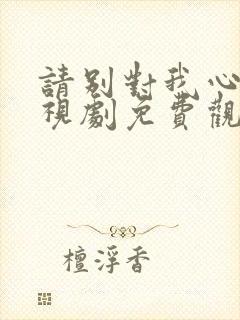 請別對我心
視劇免費觀
檀浮香